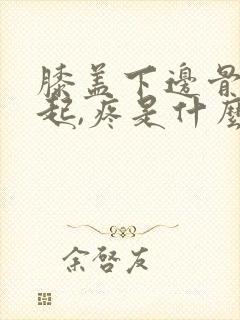 膝盖下邊骨
起,疼是什麼
余啓友